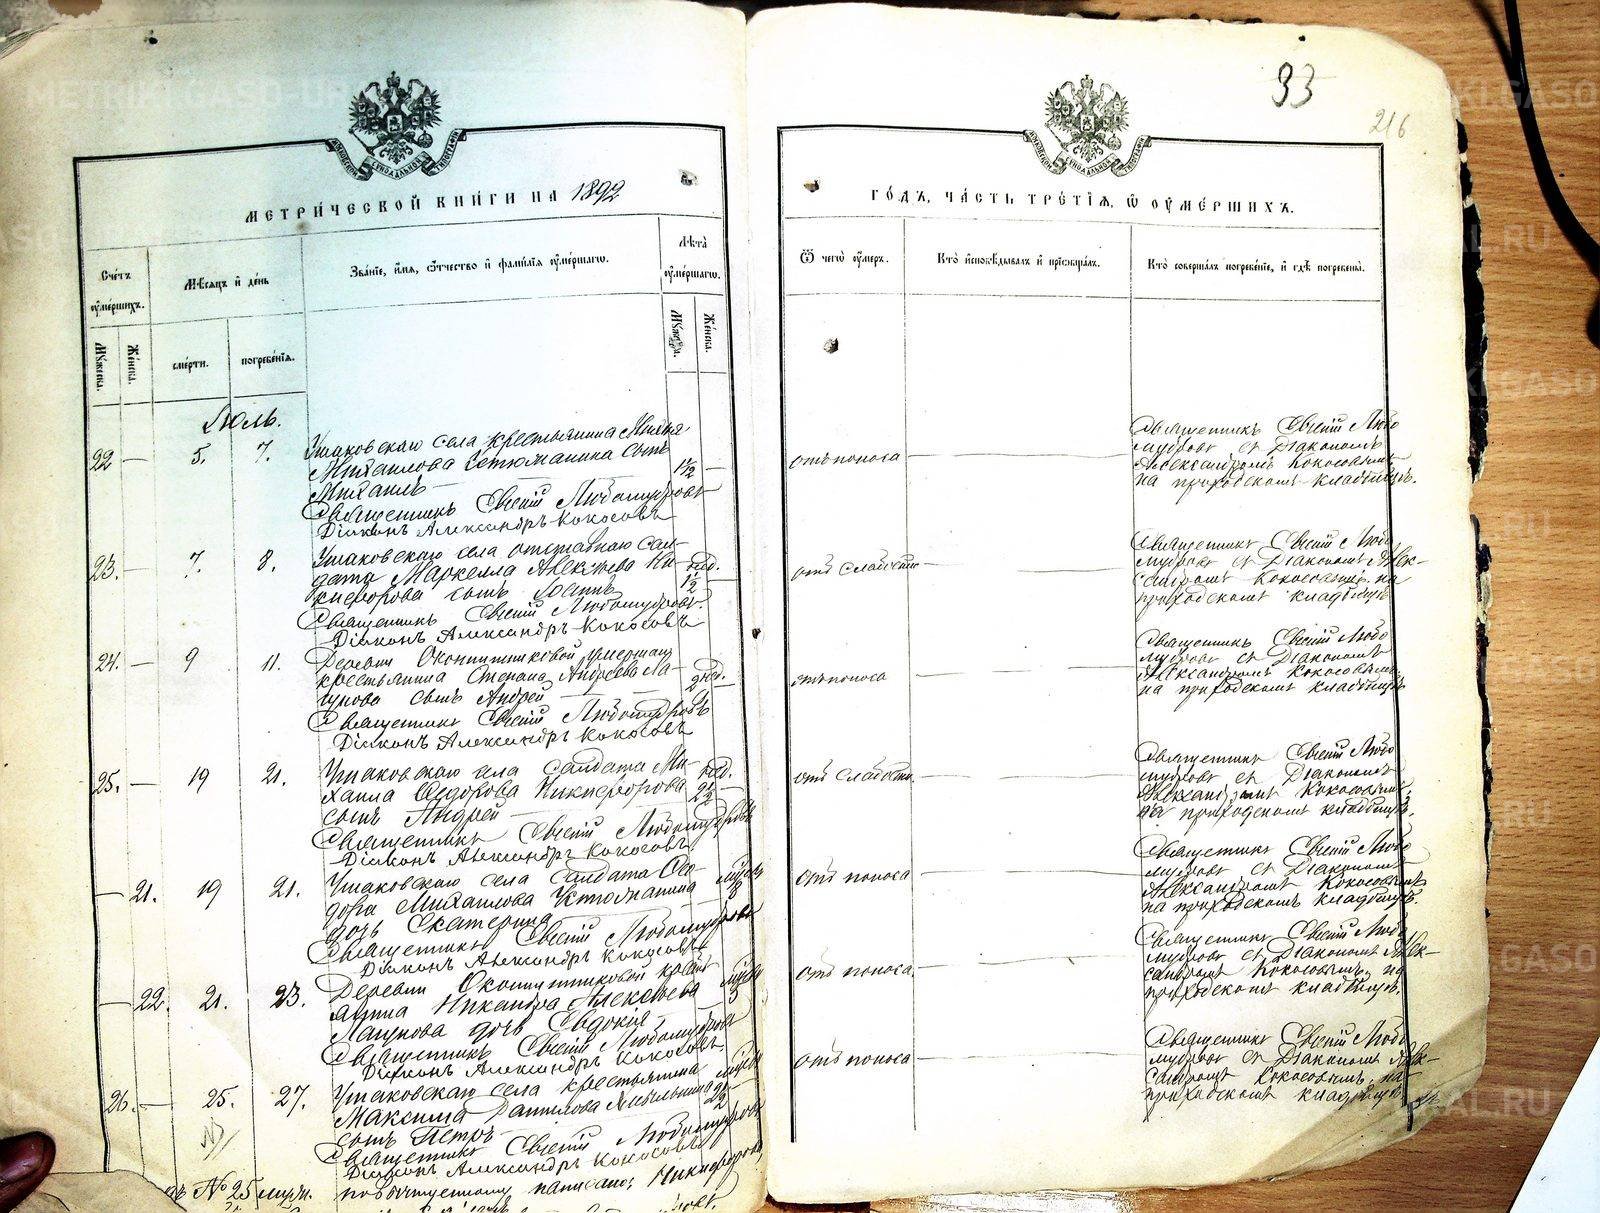 33
216
МОСКОВСКОЙ СУНОДАЛЬНОЙ ТИПОГРАФІИ
МОСКОВСКОЙ СУНОДАЛЬНОЙ ТИПОГРАФІИ
МЕТРИ́ЧЕСКОЙ КНИ́ГИ НА 1892
ГО́ДЪ, ЧА́СТЬ ТРЕ́ТІѦ, Ѽ ОУМЕ́РШИХЪ.
Сче́тъ оуме́ршихъ.
Мѣ́сѧцъ и҆ де́нь
Зва́нїе, и҆́мѧ, ѻ҆́тчество и҆ фами́лїѧ оуме́ршагѡ.
Лѣ́та оуме́ршагѡ.
Ѿ чегѡ̀ оу́меръ.
Кто̀ и҆сповѣ́дывалъ и҆ прїѡбща́лъ.
Кто̀ соверша́лъ погребе́нїе, и҆ гдѣ̀ погребены̀.
Мꙋ́жеска.
Же́нска.
сме́рти.
погребе́нїѧ.
Мꙋ́жеска.
Же́нска.
Іюль.
22 — 5. 7. Ушаковскаго села крестьянина
Михаилова Устюжанина сынъ 1½ —
Михаилъ —
Священникъ Евгеній Любомудровъ
Діаконъ Александръ Кокосовъ
отъ поноса
Священникъ Евгеній Любо
мудровъ съ Діакономъ
Александромъ Кокосовымъ
на приходскомъ кладбищѣ.
23. — 7. 8. Ушаковскаго села отставнаго сол-
дата Маркелла Алексѣева Ни-
кифорова сынъ 1½
Священникъ Евгеній Любомудровъ.
Діаконъ Александръ Кокосовъ
отъ слабости
Священникъ Евгеній Любо
мудровъ съ Діакономъ Алек-
сандромъ Кокосовымъ на
приходскомъ кладбищѣ
24. — 9 11. Деревни умершаго
крестьянина Степана Андреева Ла-
гунова сынъ Андрей 2 нед.
Священникъ Евгеній Любомудровъ
Діаконъ Александръ Кокосовъ
отъ поноса
Священникъ Евгеній Любо
мудровъ съ Діакономъ
Александромъ Кокосовымъ
на приходскомъ кладбищѣ
25. — 19 21. Ушаковскаго села солдата Ми-
хаила Ѳедорова Никифорова 2½
сынъ Андрей
Священникъ Евгеній Любомудровъ
Діаконъ Александръ Кокосовъ
отъ слабости
Священникъ Евгеній Любо
мудровъ съ Діакономъ
Александромъ Кокосовымъ
на приходскомъ кладбищѣ.
— 21. 19 21. Ушаковскаго села солдата Ѳео-
дора Михаилова Устюжанина
дочь Екатерина
Священникъ Евгеній Любомудровъ
Діаконъ Александръ Кокосовъ
отъ поноса
Священникъ Евгеній Любо
мудровъ съ Діакономъ
Александромъ Кокосовымъ
на приходскомъ кладбищѣ.
— 22. 21. 23. Деревни
Никандра Алексѣева
Лагунова дочь Евдокія
Священникъ Евгеній Любомудровъ
Діаконъ Александръ Кокосовъ
отъ поноса
Священникъ Евгеній Любо
мудровъ съ Діакономъ Алек-
сандромъ Кокосовымъ на
приходскомъ кладбищѣ.
26. — 25. 27. Ушаковскаго села крестьянина
Максима Данилова
сынъ Петръ
Священникъ Евгеній Любомудровъ
Діаконъ Александръ Кокосовъ
отъ поноса
Священникъ Евгеній Любо
мудровъ съ Діакономъ Алек-
сандромъ Кокосовымъ на
приходскомъ кладбищѣ
№ 25 написано: Никифорова